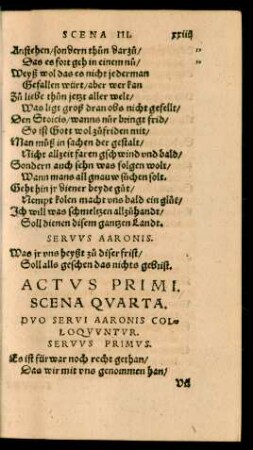 SCENA III. xxiiij
Anstehen/sondern thůn darzů/
Das es fort geh in einem nů/
Weyß wol das es nicht jederman
Gefallen würt/aber wer kan
Zů liebe thůn jetzt aller welt/
Was ligt groß dran obs nicht gefellt/
Den Stoicis/wanns nůr bringt frid/
So ist Gott wol zůfriden mit/
Man můß in sachen der gestalt/
Nicht allzeit faren gschwind vnd bald/
Sondern auch sehn was folgen wolt/
Wann mans all gnauw sůchen solt.
Geht hin jr diener beyde gůt/
Nempt kolen macht vns bald ein glůt/
Ich will was schmeltzen allzůhandt/
Soll dienen disem gantzen Landt.
SERVVS AARONIS.
Was jr vns heyßt zů diser frist/
Soll als geschen das nichts gebrist.
ACTVS PRIMI,
SCENA QVARTA,
DVO SERVI AARONIS COL-
LOQVVNTVR.
SERVVS PRIMVS.
Es ist fürwar noch recht gethan/
Das wir mit vns genommen han/